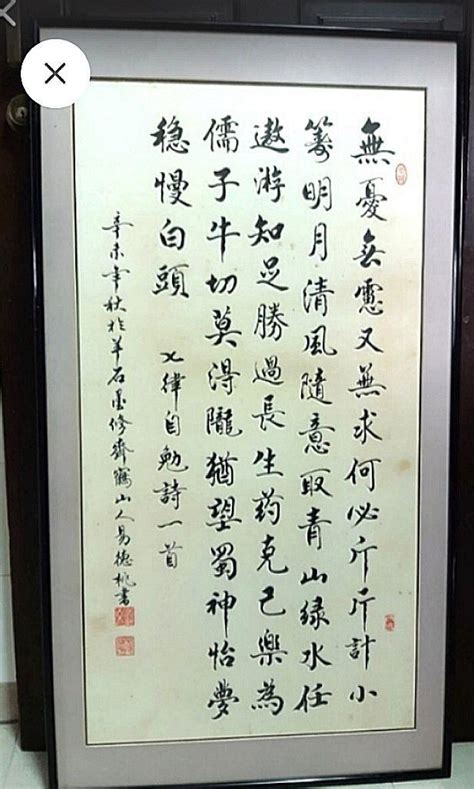 無憂無慮又無求何必斤斤計小
籌明月清風隨意取青山绿水任
遨游知足勝過長生药克己樂為
儒子牛切莫得隴猶望蜀神怡夢
稳慢白頭 七律自勉詩一首
辛未年秋於羊石墨修齋鶴山人易德桃書